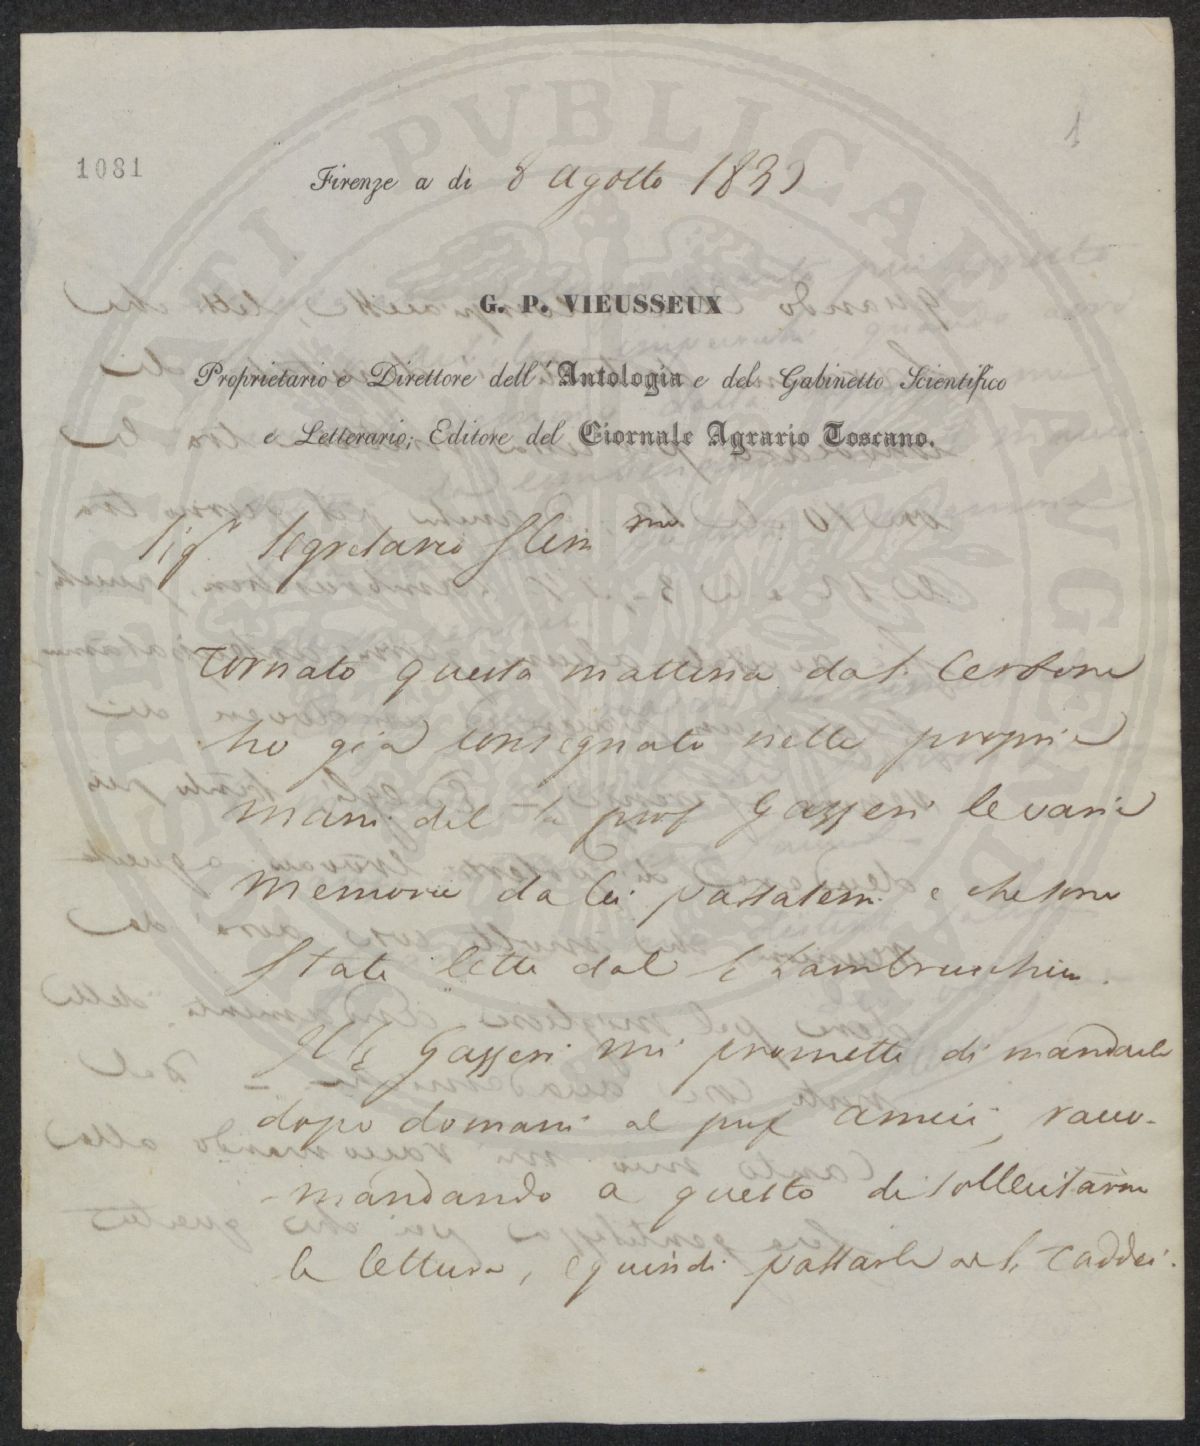 1
1081
Firenze a dì 8 agosto 183
G. P. VIEUSSEUX
Proprietario e Direttore dell' Antologia e del Gabinetto Scientifico
e Letterario; Editore del Giornale Agrario Toscano.
Sigr Segretario
Tornato questa mattina dal S. Cerbone
ho già consegnato nelle proprie
mani del Sr prof Gazzeri le varie
memorie da lei passatemi e che sono
state lette dal Sr Lambruschini.
Il Sr Gazzeri mi promette di mandarle
dopo domani al prof Amici, racco-
mandando a questo di sollecitarne
la lettura, e quindi passarle al Sr Taddei.